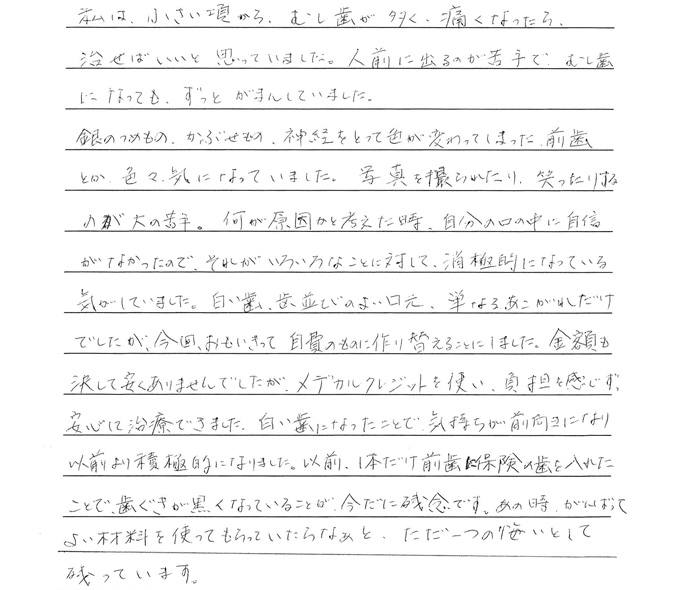 私は、小さい頃から、むし歯が多く、痛くなったら、
治せばいいと思っていました。人前に出るのが苦手で、むし歯
になっても、ずっとがまんしていました。
銀のつめもの、かぶせもの、神経をとって色が変わってしまった、前歯
とか、色々気になっていました。写真を撮られたり、笑ったりする
のが大の苦手。何が原因かと考えた時、自分の口の中に自信
がなかったので、それがいろいろなことに対して、消極的になっている
気がしていました。白い歯、歯並びのよい口元、単なるあこがれだけ
でしたが、今回、おもいきって自費のものに作り替えることにしました。金額も
決して安くありませんでしたが、メデカルクレジットを使い、負担を感じず、
安心して治療できました。白い歯になったことで、気持ちが前向きになり
以前より積極的になりました。以前、1本だけ前歯に保険の歯を入れた
ことで、歯ぐきが黒くなっていることが、今だに残念です。あの時、がんばって
よい材料を使ってもらっていたらなぁと、ただ一つの悔いとして
残っています。